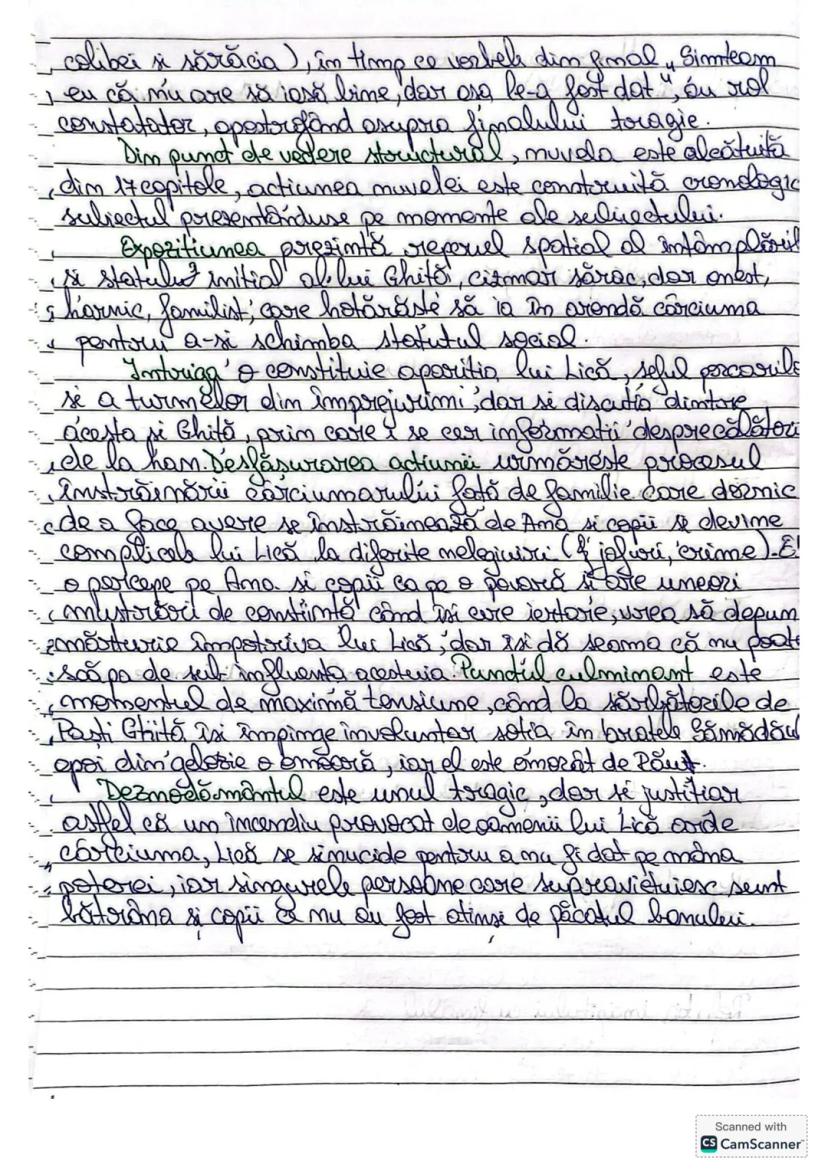 colibei și sărăcia), în timp ce verbele din final „Simțeam
eu că nu are să iasă bine, dar așa le-a fost dat", au rol
constatator, apostrofând asupra finalului tragic.
Din punct de vedere structural, nuvela este alcătuită
din 17 capitole, acțiunea nuvelei este construită cronologic
subiectul prezentânduse pe momente ale subiectului.
Expozițiunea prezintă reperul spațial al întâmplăril
și statului inițial al lui Ghiță, cizmar sărac, dar onest,
harnic, familist, care hotărăște să ia în arendă cârciuma
pentru a-și schimba statutul social.
Intriga o constituie apariția lui Lică, șeful porcaril
și a turmelor din împrejurimi, dar și discuția dintre
acesta și Ghiță, prin care i se cer informații despre călători
de la han. Desfășurarea acțiunii urmărește procesul
înstrăinării cârciumarului față de familie care dornic
de a face avere se înstrăinează de Ana și copii și devine
complicele lui Lică la diferite nelegiuiri (jafuri, crime). El
o percepe pe Ana și copii ca pe o povară și are uneori
mustrări de conștiință când își cere iertare, vrea să depun
mărturie împotriva lui Lică, dar își dă seama că nu poate
scăpa de sub influența acestuia. Punctul culminant este
momentul de maximă tensiune, când la sărbătorile de
Paști Ghiță își împinge involuntar soția în brațele Sămădăul
apoi din gelozie o omoară, iar el este omorât de Răuț.
Dezmodământul este unul tragic, dar și justițiar
astfel că un incendiu provocat de oamenii lui Lică arde
cârciuma, Lică se sinucide pentru a nu fi dat pe mâna
poterei, iar singurele persoane care supraviețuiesc sunt
bătrâna și copii că nu au fost atinși de păcatul banului.
Scanned with
CS CamScanner